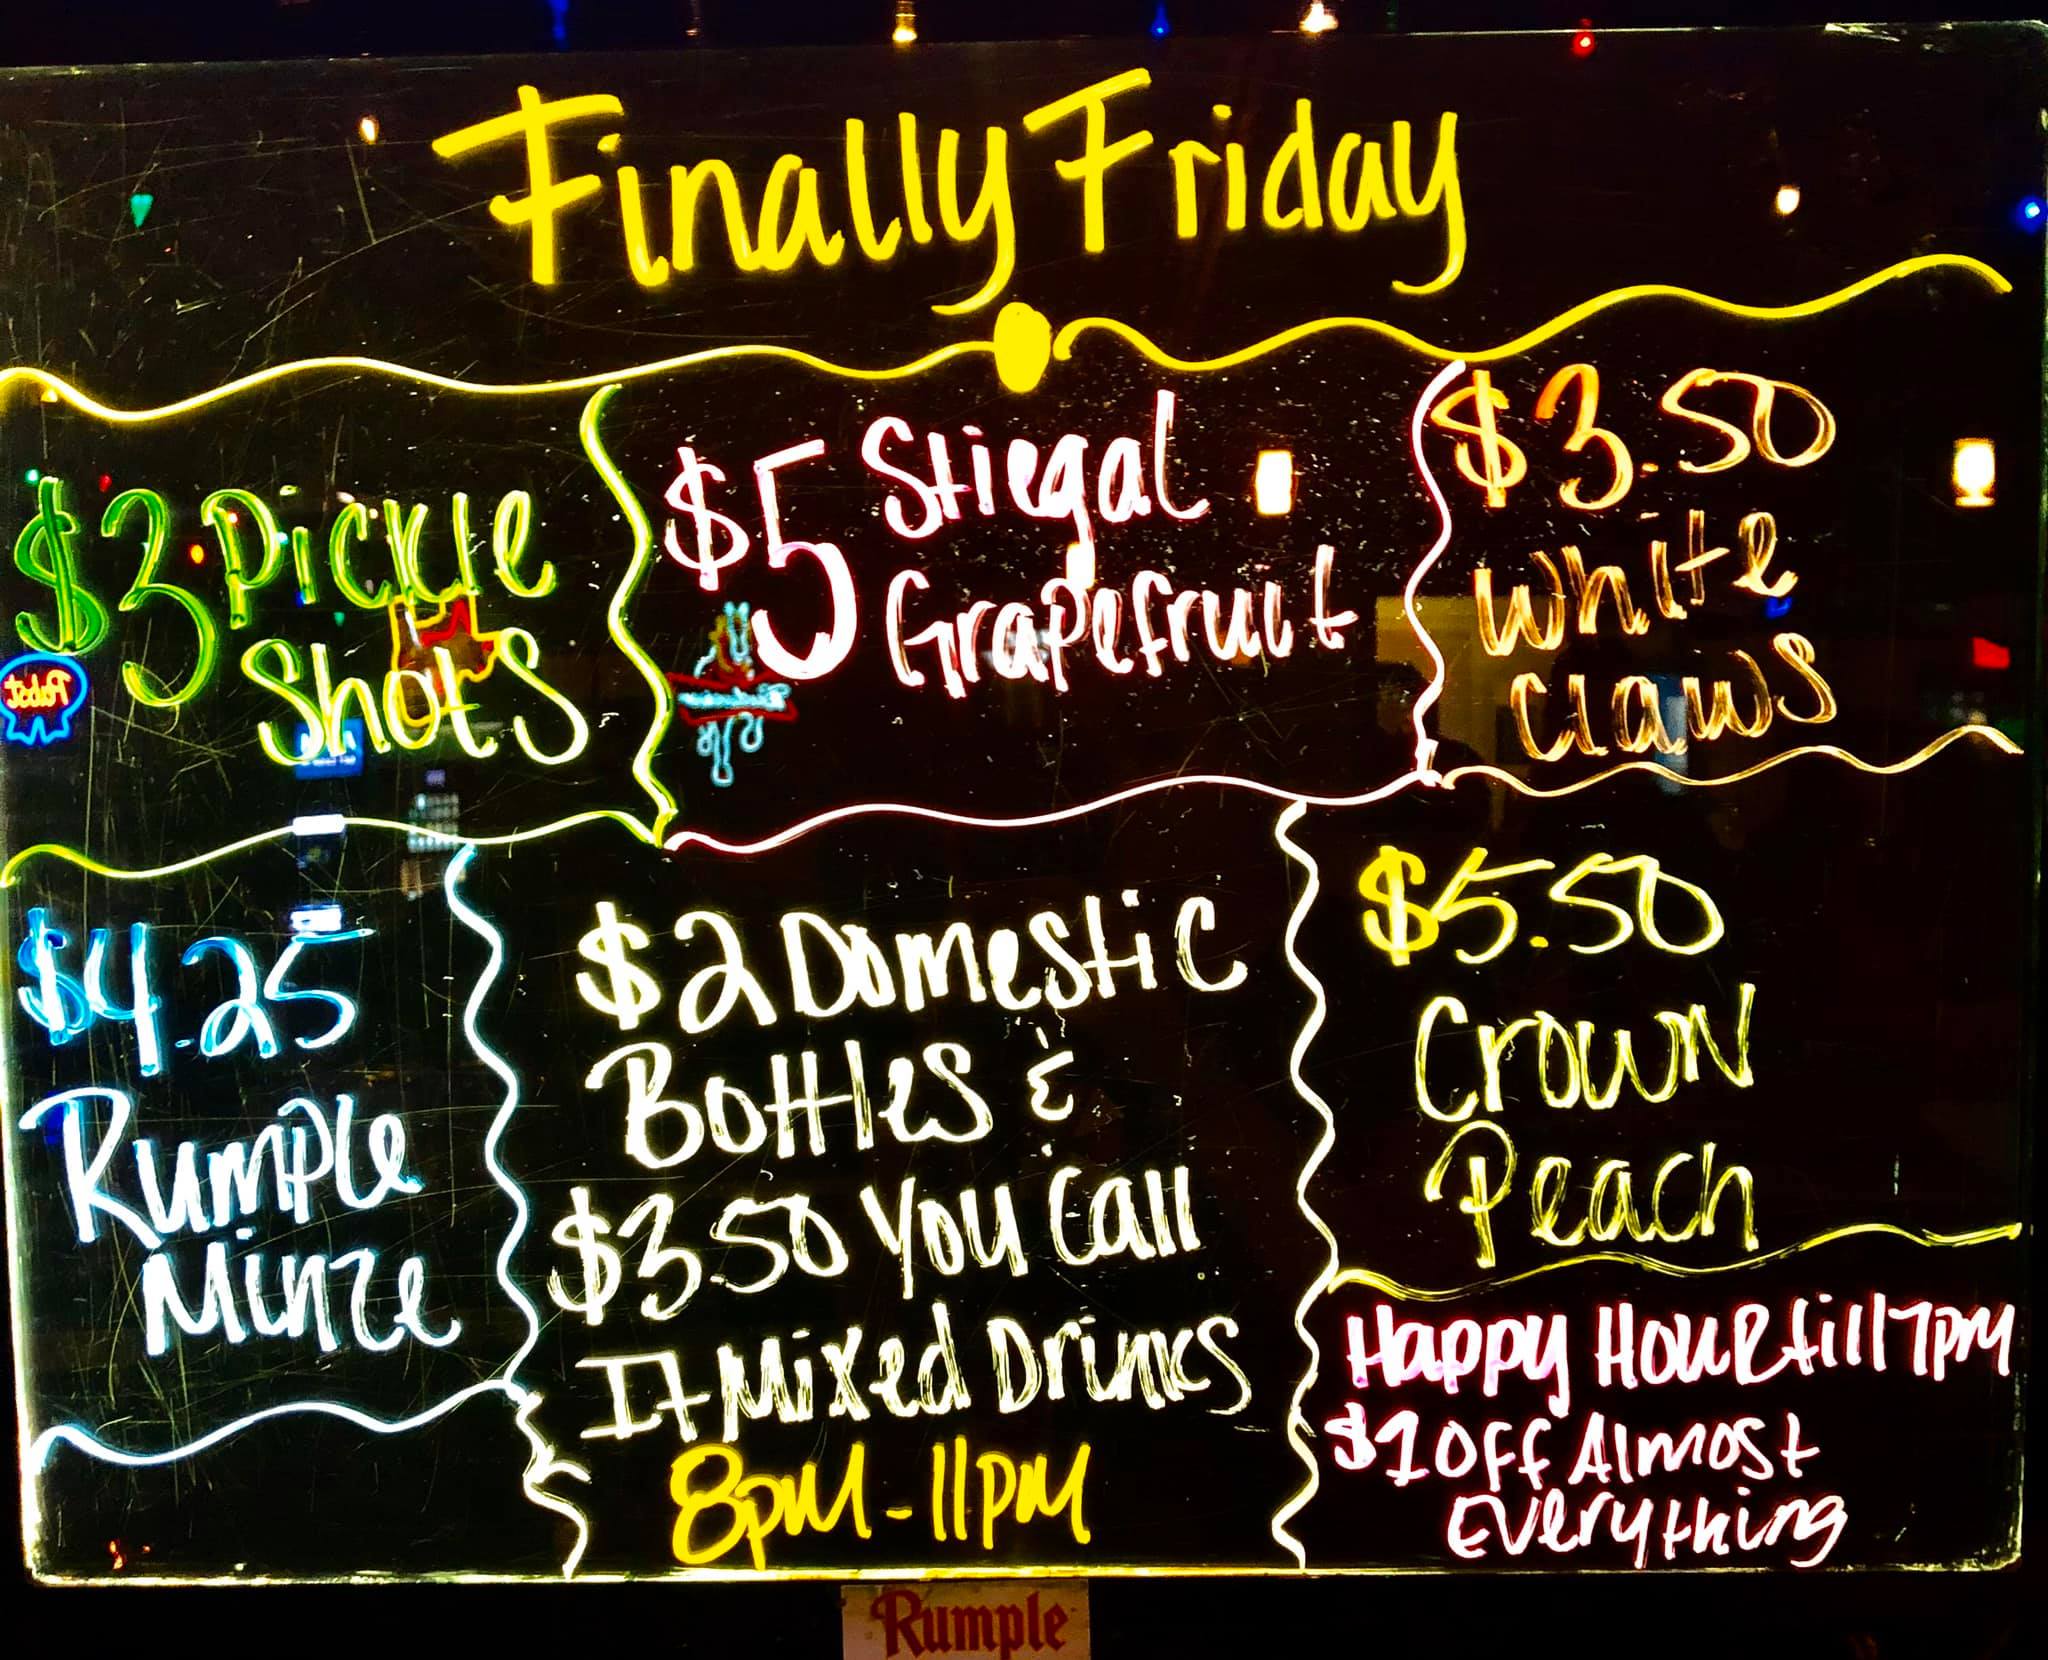 Finally Friday
$3 Pickle
Shots
$5 Stiegal
Grapefruit
$3.50
White
Claws
$4.25
Rumple
Minze
$2 Domestic
Bottles &
$3.50 You Call
It Mixed Drinks
8pm - 11pm
$5.50
Crown
Peach
Happy Hour till 7pm
$1 Off Almost
Everything
Pabst
Budweiser
Rumple